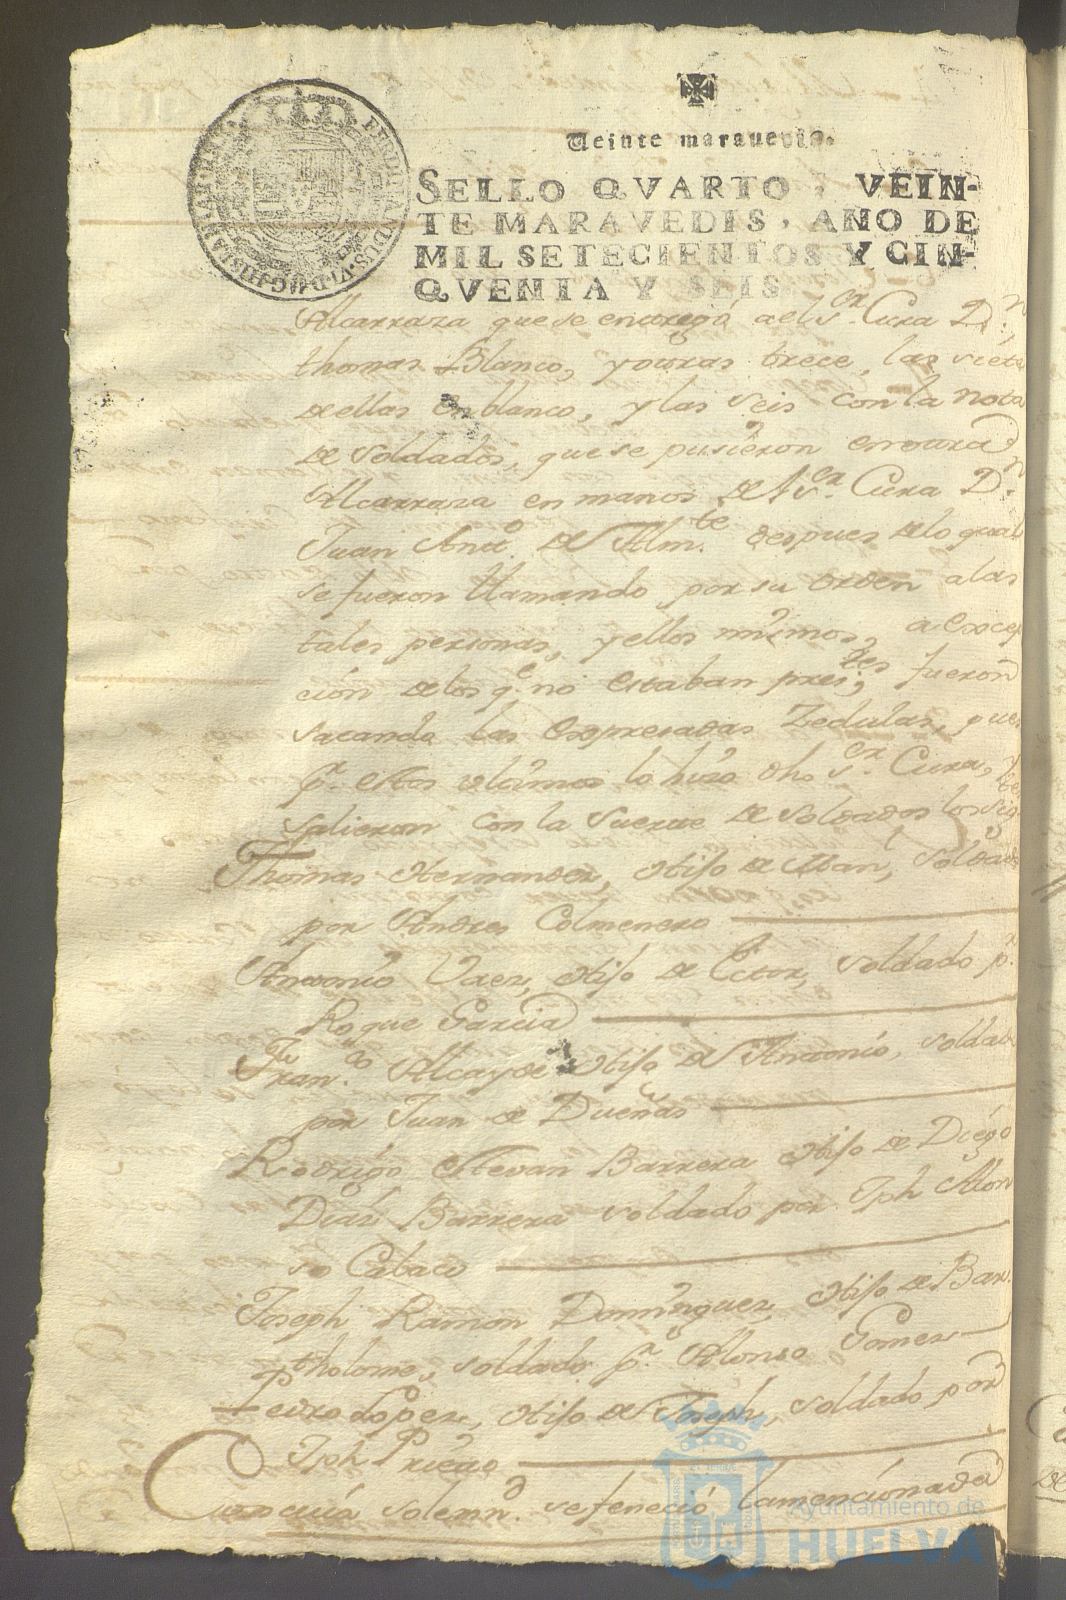 Veinte maravedis.
SELLO QVARTO, VEIN-
TE MARAVEDIS, AÑO DE
MIL SETECIENTOS Y CIN-
QVENTA Y SEIS
FERDINANDUS VI D G HISPANIAR REX
Alcarraza que se entregó a el Sr. Cura Dn.
thomas Blanco, y otras trece, las siete
de ellas en blanco, y las seis con la nota
de Soldados, que se pusieron en otra
Alcarraza en manos del Sr. Cura Dn.
Juan Anto. del Almte. despues de lo qual
se fueron llamando por su orden a las
tales personas, y ellos mismos, a excep
ción de los qe. no estaban presntes, fueron
sacando las expresadas Zedulas, pues
pr. estos ultimos lo hizo dho Sr. Cura, y
salieron con la suerte de soldados los sigtes
Thomas Hernandez, Hijo de Juan, soldado
por Andres Colmenero
Antonio Vaez, Hijo de Ector, soldado pr.
Roque Garcia
Franco. Alcayde Hijo de Antonio, soldado
por Juan de Dueñas
Rodrigo Estevan Barrera Hijo de Diego
Diaz Barrera soldado por Jph Alon
so Cabaco
Joseph Ramon Dominguez, Hijo de Bar.
tholome, soldado pr. Alonso Gomez
Pedro Lopez, Hijo de Joseph, soldado por
Jph Prieto
Con cuia solemnd. se feneció la mencionada
Ayuntamiento de
HUELVA